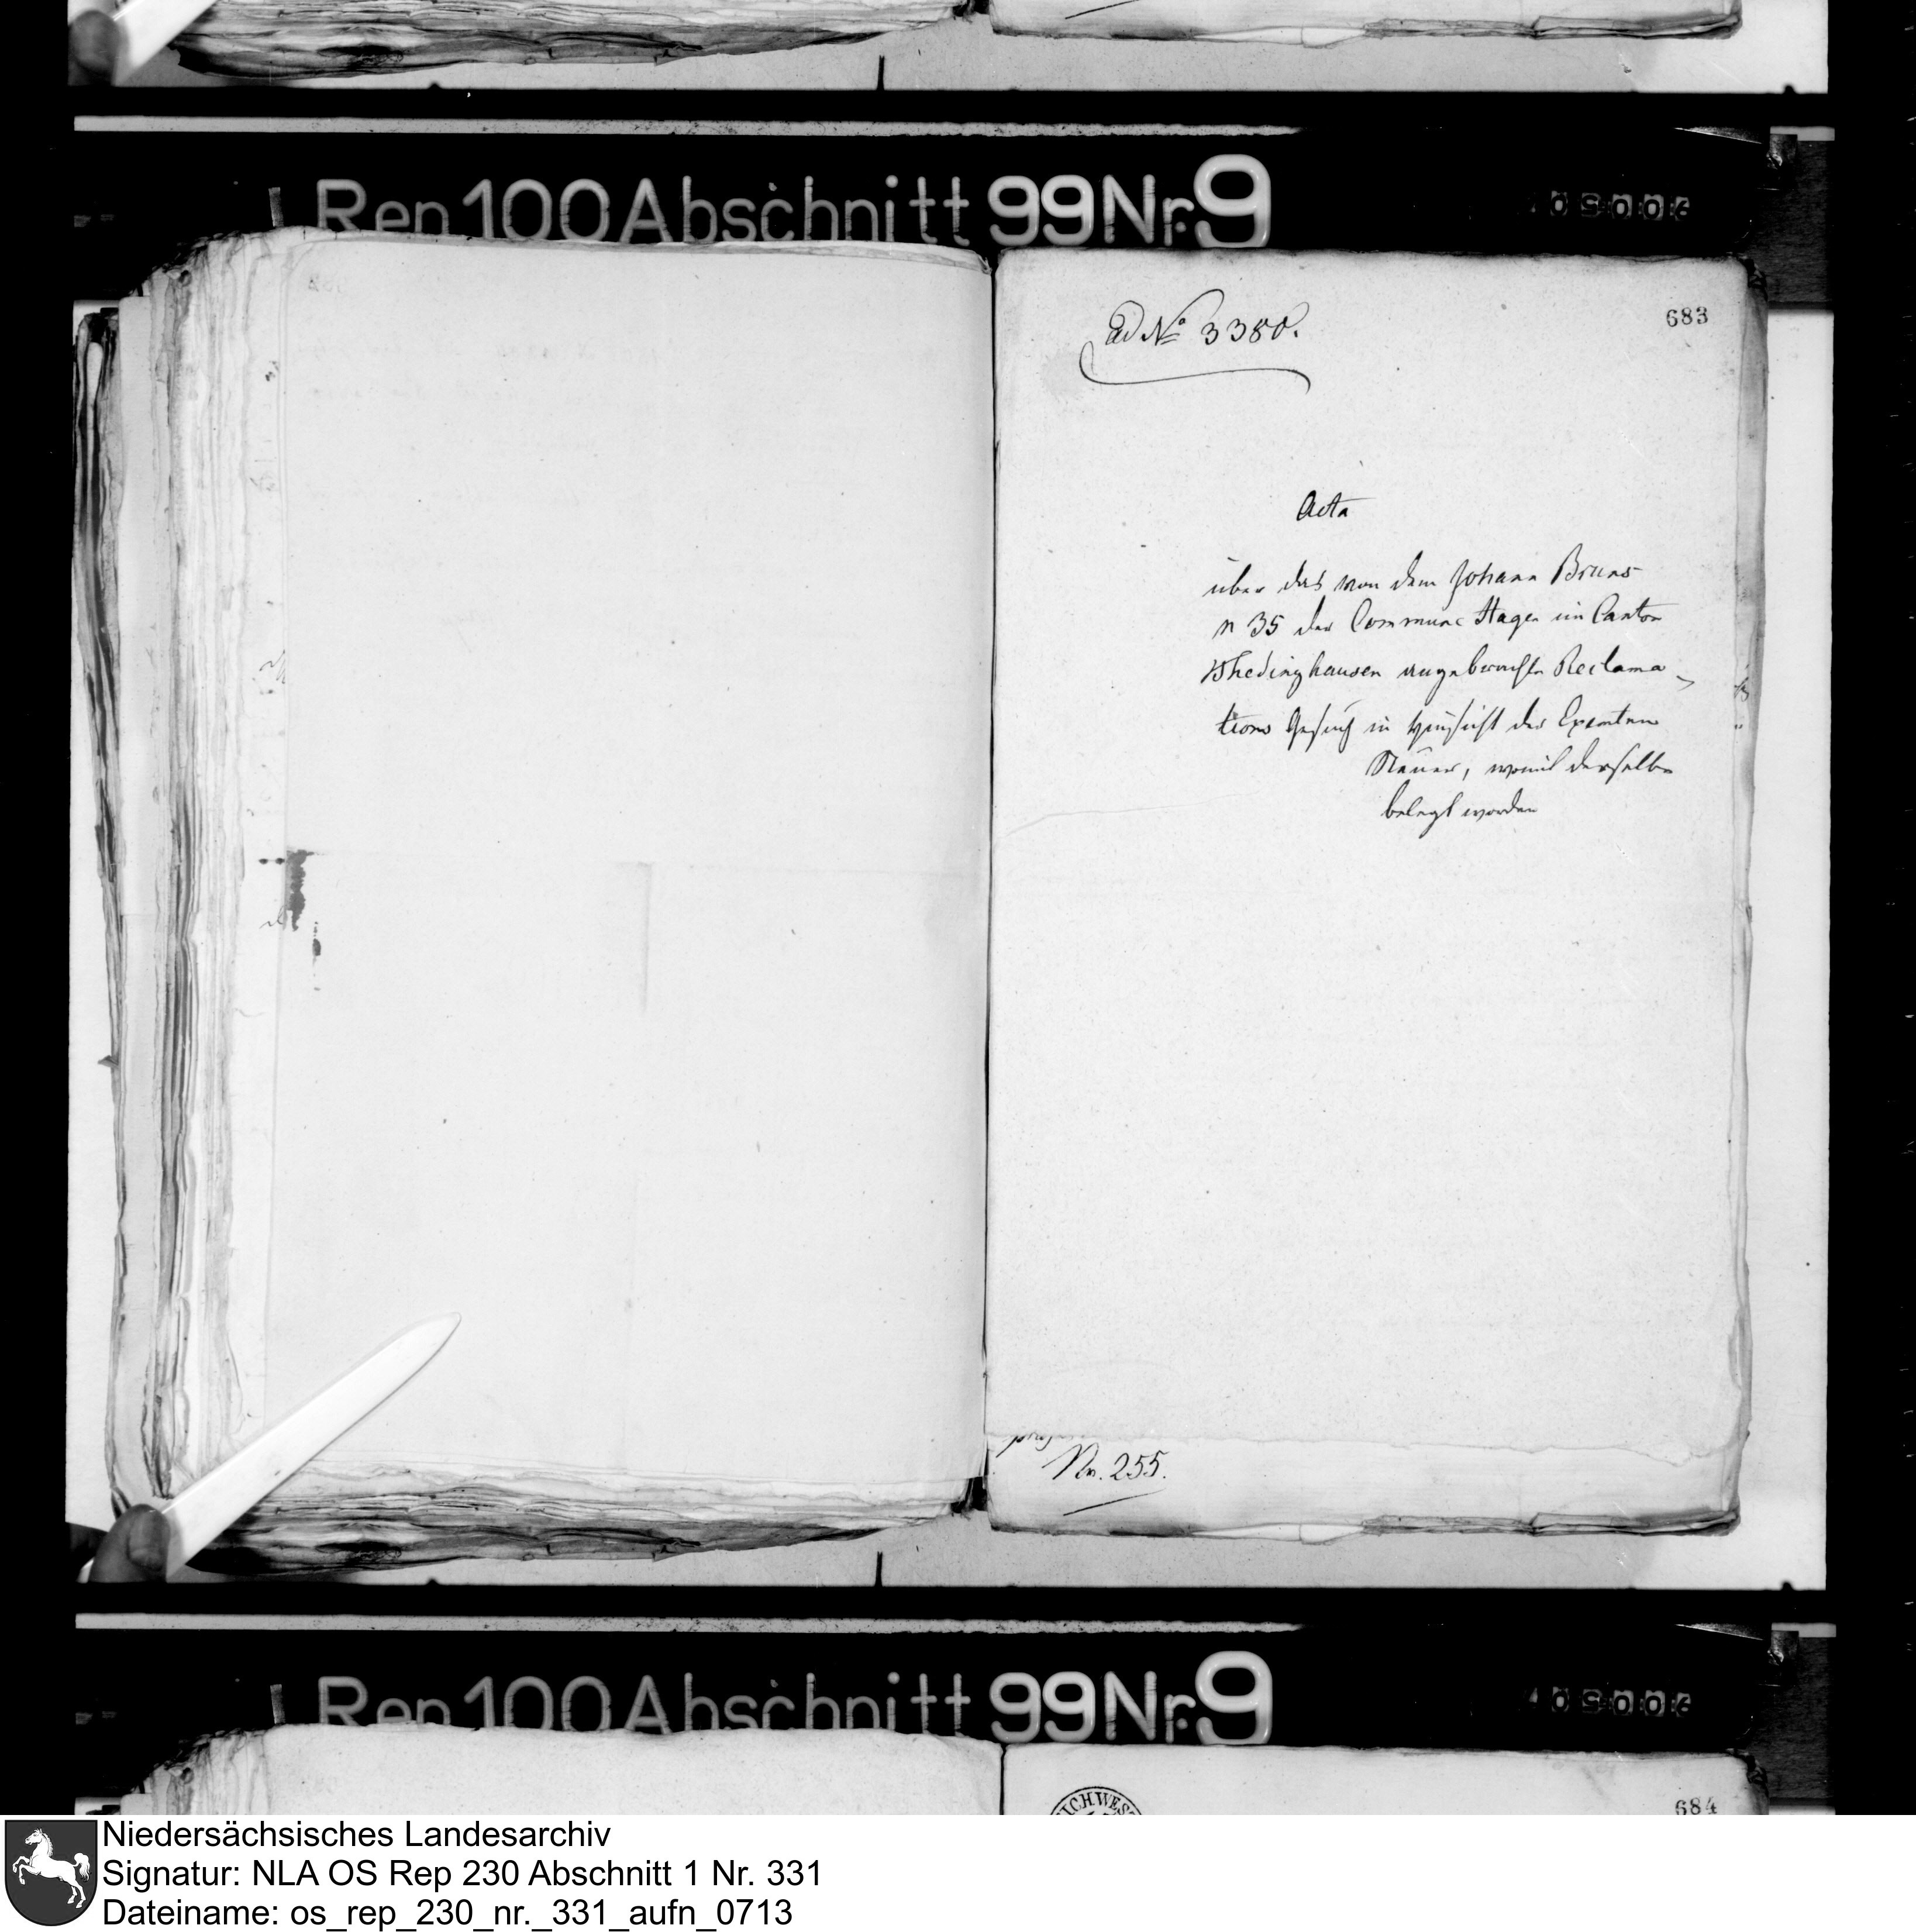 Rep 100 Abschnitt 99 Nr. 9
683
ad No 3380.
Acta
über das von dem Johann Bruns
n 35 der Commune Hagen im Canton
Thedinghausen angebrachte Reclama-
tions Gesuch in Hinsicht der Exemten
Steuer, womit derselbe
belegt worden
Nr. 255.
Rep 100 Abschnitt 99 Nr. 9
684
Niedersächsisches Landesarchiv
Signatur: NLA OS Rep 230 Abschnitt 1 Nr. 331
Dateiname: os_rep_230_nr._331_aufn_0713